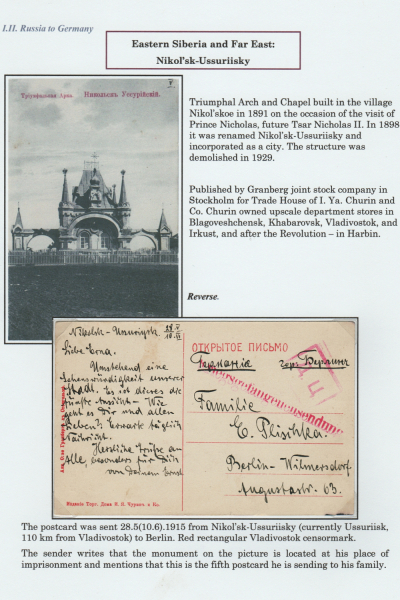 I.II. Russia to Germany
Eastern Siberia and Far East:
Nikol'sk-Ussuriisky
Тріумфальная Арка. Никольскъ Уссурійскій.
Triumphal Arch and Chapel built in the village
Nikol'skoe in 1891 on the occasion of the visit of
Prince Nicholas, future Tsar Nicholas II. In 1898
it was renamed Nikol'sk-Ussuriisky and
incorporated as a city. The structure was
demolished in 1929.
Published by Granberg joint stock company in
Stockholm for Trade House of I. Ya. Churin and
Co. Churin owned upscale department stores in
Blagoveshchensk, Khabarovsk, Vladivostok, and
Irkust, and after the Revolution – in Harbin.
Reverse.
Nikolsk-Ussuriysk
Umstehend eine
Sehenswürdigkeit unserer
Stadt. Es ist dieses die
fünfte Ansicht. Wie
geht es Dir und allen
Lieben? Erwarte täglich
Nachricht.
Herzliche Grüße an
alle, besonders für Dich
von Deinem
Изданіе Торг. Дома И. Я. Чуринъ и Ко.
ОТКРЫТОЕ ПИСЬМО
Германія гор. Берлинъ
Kriegsgefangenensendung
Familie
E. Plischka.
Berlin-Wilmersdorf
Augustastr. 63.
The postcard was sent 28.5(10.6).1915 from Nikol'sk-Ussuriisky (currently Ussuriisk,
110 km from Vladivostok) to Berlin. Red rectangular Vladivostok censormark.
The sender writes that the monument on the picture is located at his place of
imprisonment and mentions that this is the fifth postcard he is sending to his family.